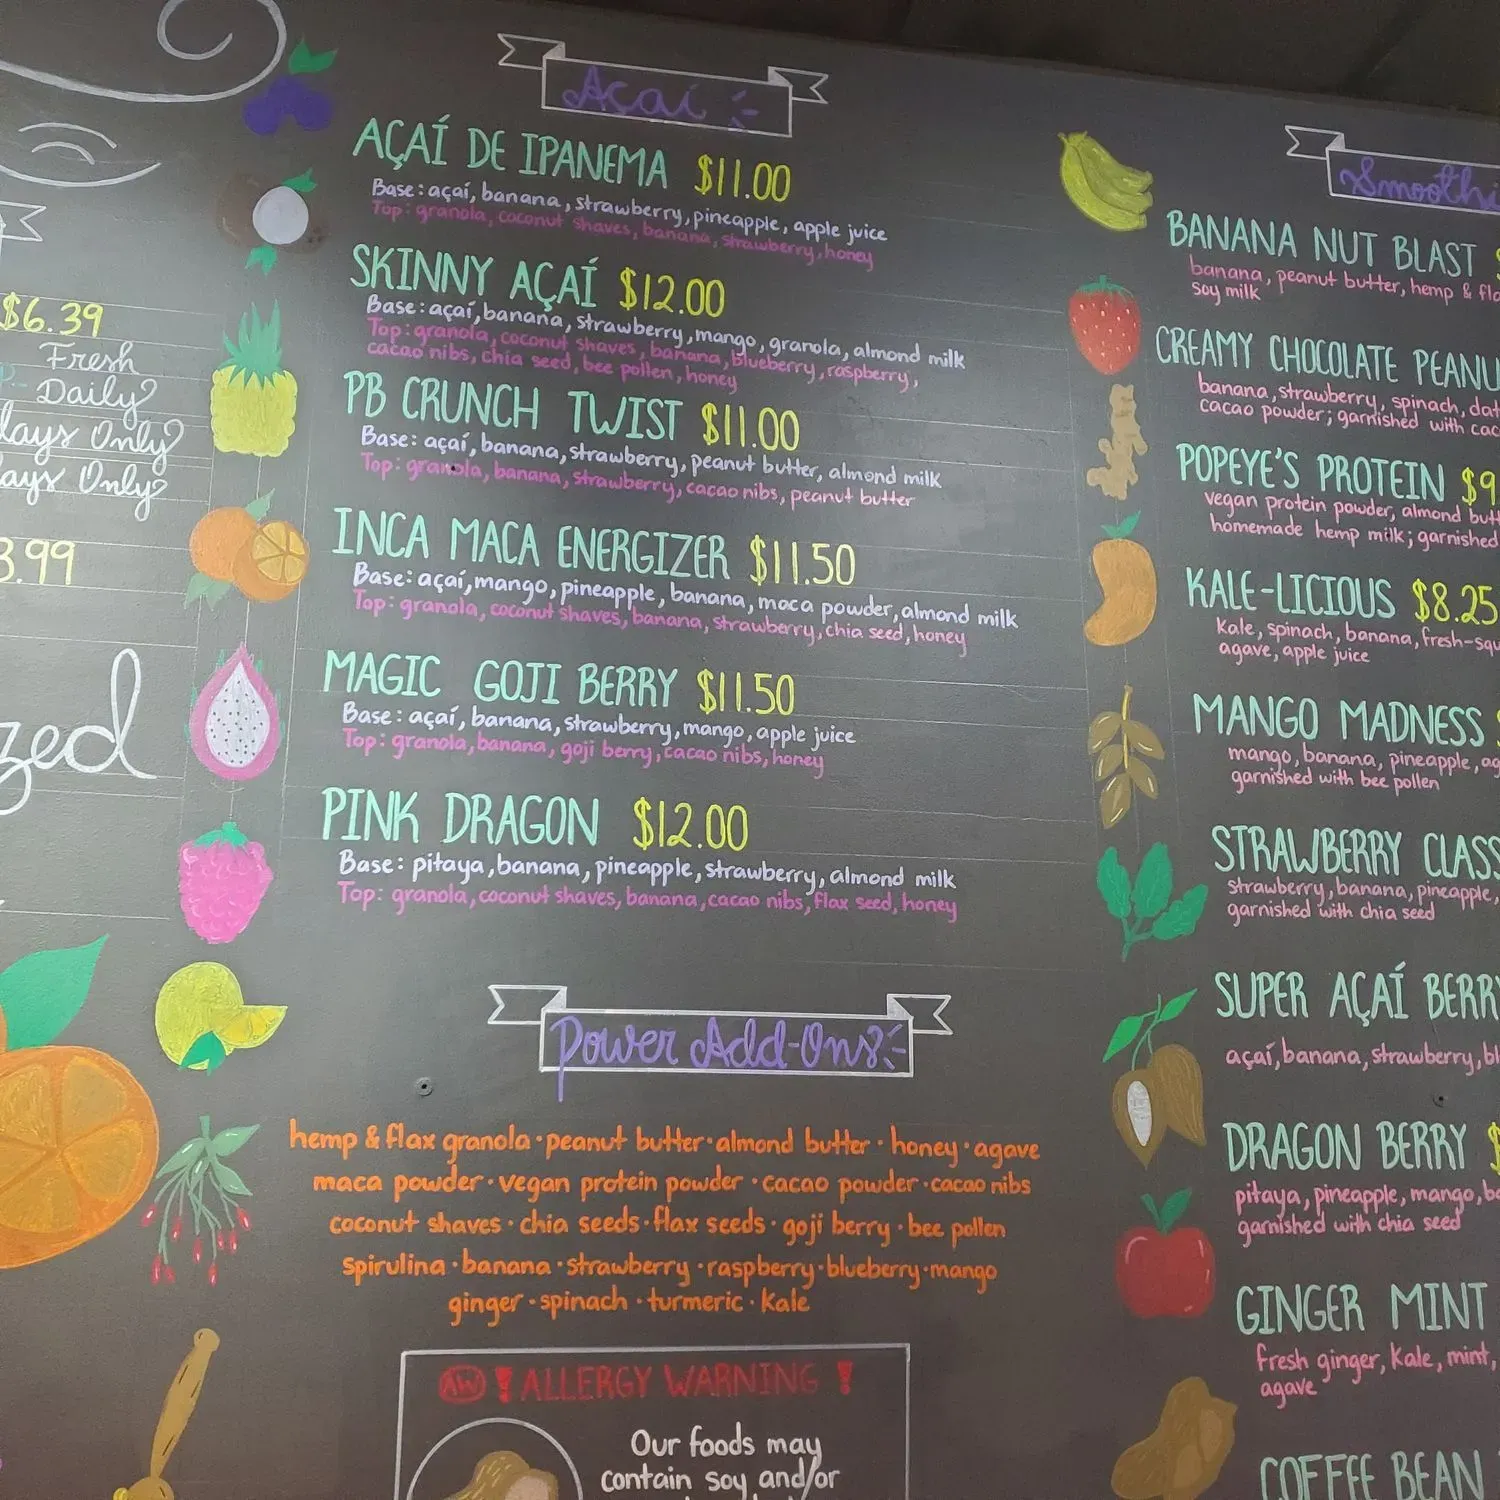 $6.39
Fresh
Daily
Days Only
Days Only
3.99
zed
Açaí
AÇAÍ DE IPANEMA $11.00
Base: açaí, banana, strawberry, pineapple, apple juice
Top: granola, coconut shaves, banana, strawberry, honey
SKINNY AÇAÍ $12.00
Base: açaí, banana, strawberry, mango, granola, almond milk
Top: granola, coconut shaves, banana, blueberry, raspberry,
cacao nibs, chia seed, bee pollen, honey
PB CRUNCH TWIST $11.00
Base: açaí, banana, strawberry, peanut butter, almond milk
Top: granola, banana, strawberry, cacao nibs, peanut butter
INCA MACA ENERGIZER $11.50
Base: açaí, mango, pineapple, banana, maca powder, almond milk
Top: granola, coconut shaves, banana, strawberry, chia seed, honey
MAGIC GOJI BERRY $11.50
Base: açaí, banana, strawberry, mango, apple juice
Top: granola, banana, goji berry, cacao nibs, honey
PINK DRAGON $12.00
Base: pitaya, banana, pineapple, strawberry, almond milk
Top: granola, coconut shaves, banana, cacao nibs, flax seed, honey
Power Add-Ons
hemp & flax granola · peanut butter · almond butter · honey · agave
maca powder · vegan protein powder · cacao powder · cacao nibs
coconut shaves · chia seeds · flax seeds · goji berry · bee pollen
spirulina · banana · strawberry · raspberry · blueberry · mango
ginger · spinach · turmeric · kale
AW ! ALLERGY WARNING !
Our foods may
contain soy and/or
Smoothi
BANANA NUT BLAST $
banana, peanut butter, hemp & fla
soy milk
CREAMY CHOCOLATE PEANU
banana, strawberry, spinach, dat
cacao powder; garnished with cac
POPEYE'S PROTEIN $9
vegan protein powder, almond butt
homemade hemp milk; garnished
KALE-LICIOUS $8.25
kale, spinach, banana, fresh-squ
agave, apple juice
MANGO MADNESS $
mango, banana, pineapple, ag
garnished with bee pollen
STRAWBERRY CLASS
strawberry, banana, pineapple,
garnished with chia seed
SUPER AÇAÍ BERRY
açaí, banana, strawberry, bl
DRAGON BERRY $
pitaya, pineapple, mango, ba
garnished with chia seed
GINGER MINT
fresh ginger, kale, mint,
agave
COFFEE BEAN